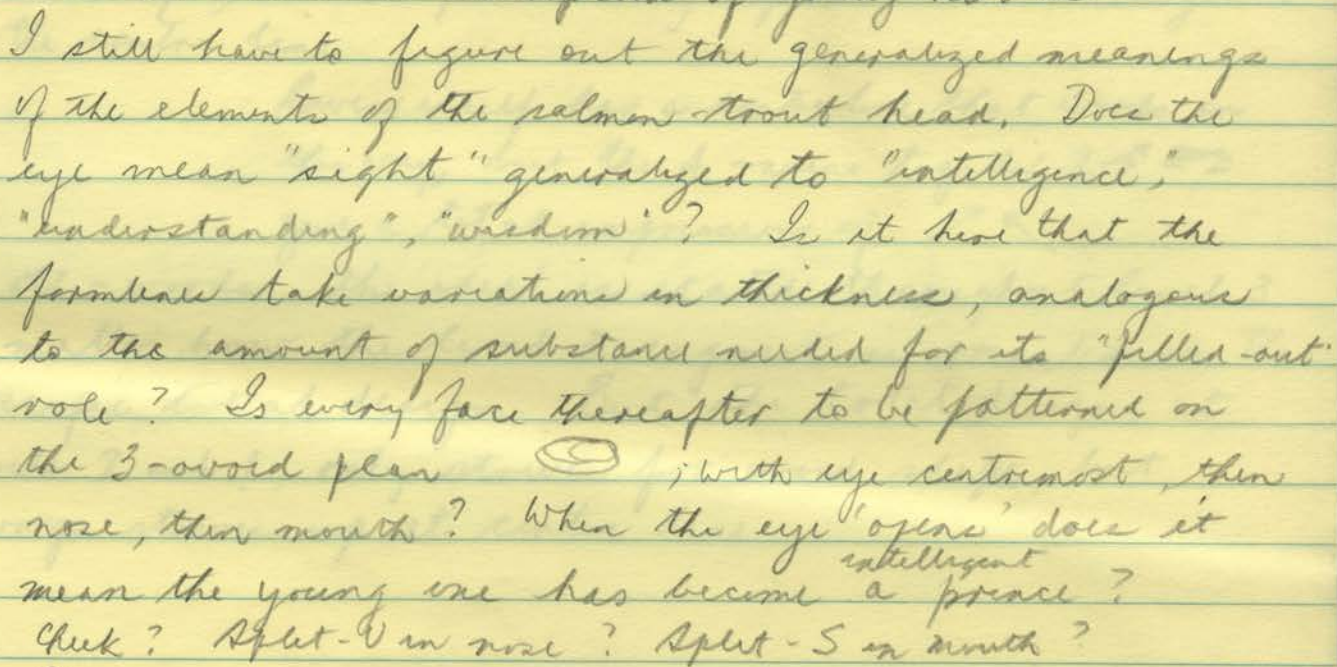 I still have to figure out the generalized meanings
of the elements of the salmon-trout head. Does the
eye mean "sight" generalized to "intelligence",
"understanding", "wisdom"? Is it here that the
formlines take variations in thickness, analogous
to the amount of substance needed for its "filled-out"
role? Is every face thereafter to be patterned on
the 3-ovoid plan ; with eye centremost, then
nose, then mouth? When the eye 'opens' does it
intelligent
mean the young one has become a prince?
Cheek? Split-U in nose? Split-S in mouth?